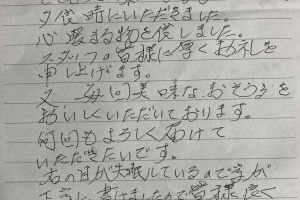 夕後時にいただきました。
心暖まる物を使しました。
スタッフの皆様に厚くお礼を
申し上げます。
又 毎回美味な、おそうざを
おいしくいただいております。
何回もよろしく届けて
いただきたいです。
右の目が失眠しているので字が
下字に書けましたので皆様